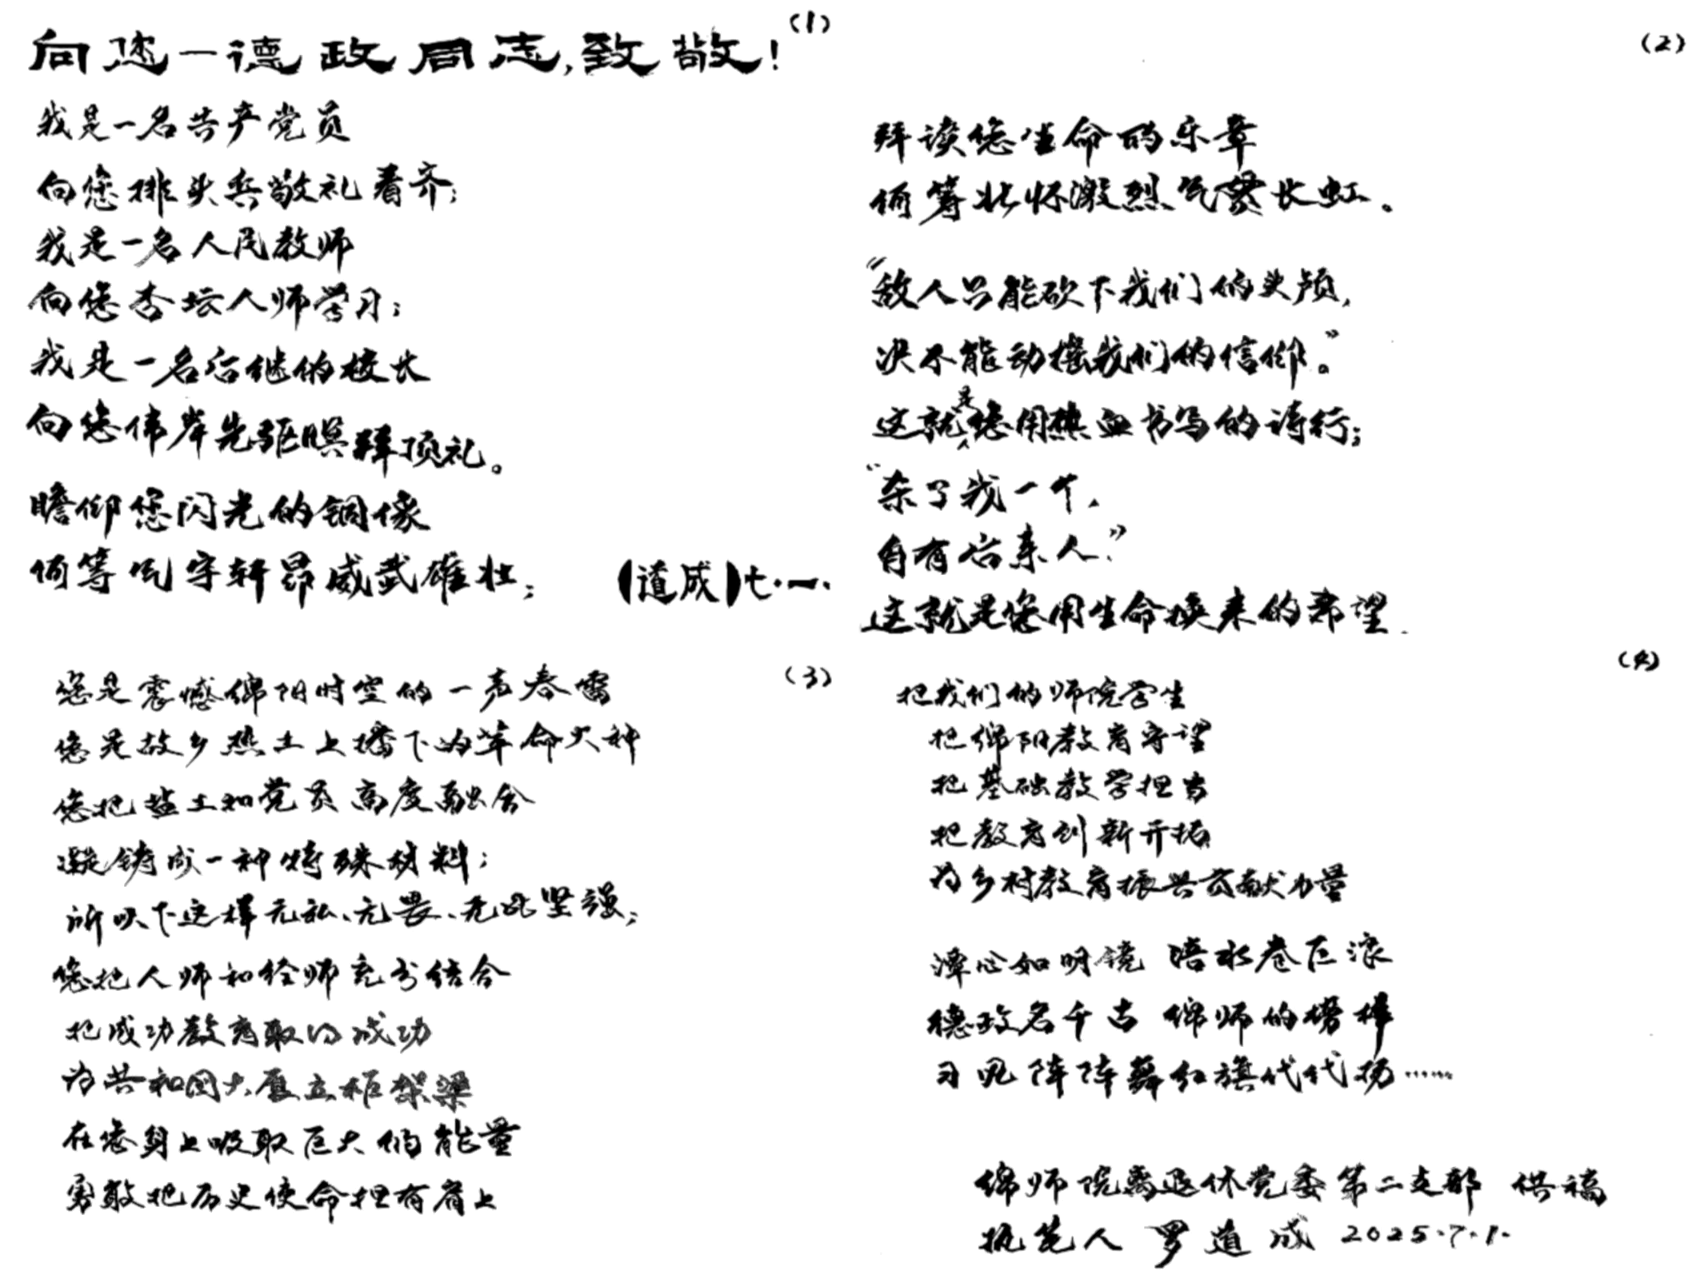 (1)
向您一德政同志,致敬!
我是一名共产党员
向您排头兵敬礼看齐;
我是一名人民教师
向您杏坛人师学习;
我是一名后继的校长
向您伟岸先驱瞑拜顶礼。
瞻仰您闪光的铜像
何等气宇轩昂威武雄壮;
【道成】七·一·
(2)
拜读您生命的乐章
何等壮怀激烈气贯长虹。
“敌人只能砍下我们的头颅,
决不能动摇我们的信仰。”
这就是您用热血书写的诗行;
“杀了我一个,
自有后来人。”
这就是您用生命换来的希望.
(3)
您是震憾绵阳时空的一声春雷
您是故乡热土上播下的革命火种
您把盐土和党员高度融合
凝铸成一种特殊材料;
所以下这样无私、无畏、无比坚强;
您把人师和经师充分结合
把成功教育取得成功
为共和国大厦立柜架梁
在您身上吸取巨大的能量
勇敢把历史使命担在肩上
(4)
把我们的师院学生
把绵阳教育守望
把基础教学担当
把教育创新开拓
为乡村教育振兴贡献力量
潭心如明镜 涪水卷巨浪
德政名千古 绵师的榜样
习见阵阵舞红旗代代扬……
绵师院离退休党委第二支部 供稿
执笔人 罗道成 2025.7.1.